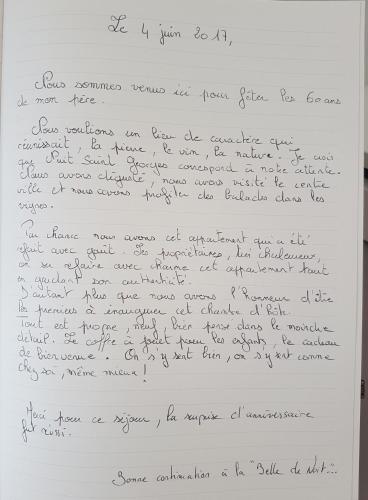 Le 4 juin 2017,
Nous sommes venus ici pour fêter les 60 ans
de mon père.
Nous voulions un lieu de caractère qui
réunissait, la pierre, le vin, la nature. Je crois
que Nuit Saint Georges correspond à notre attente.
Nous avons dégusté, nous avons visité le centre
ville et nous avons profiter des balades dans les
vignes.
Par chance nous avons cet appartement qui a été
refait avec goût. Les propriétaires, très chaleureux,
on su refaire avec charme cet appartement tout
en gardant son authenticité.
D'autant plus que nous avons l'honneur d'être
les premiers à inaugurer cet chambre d'hôte.
Tout est propre, neuf, bien pensé dans le moindre
détail. Le coffre à jouet pour les enfants, le cadeau
de bienvenue. On s'y sent bien, on s'y sent comme
chez soi, même mieux !
Merci pour ce séjour, la surprise d'anniversaire
fut réussi.
Bonne continuation à la "Belle de Nuit"...